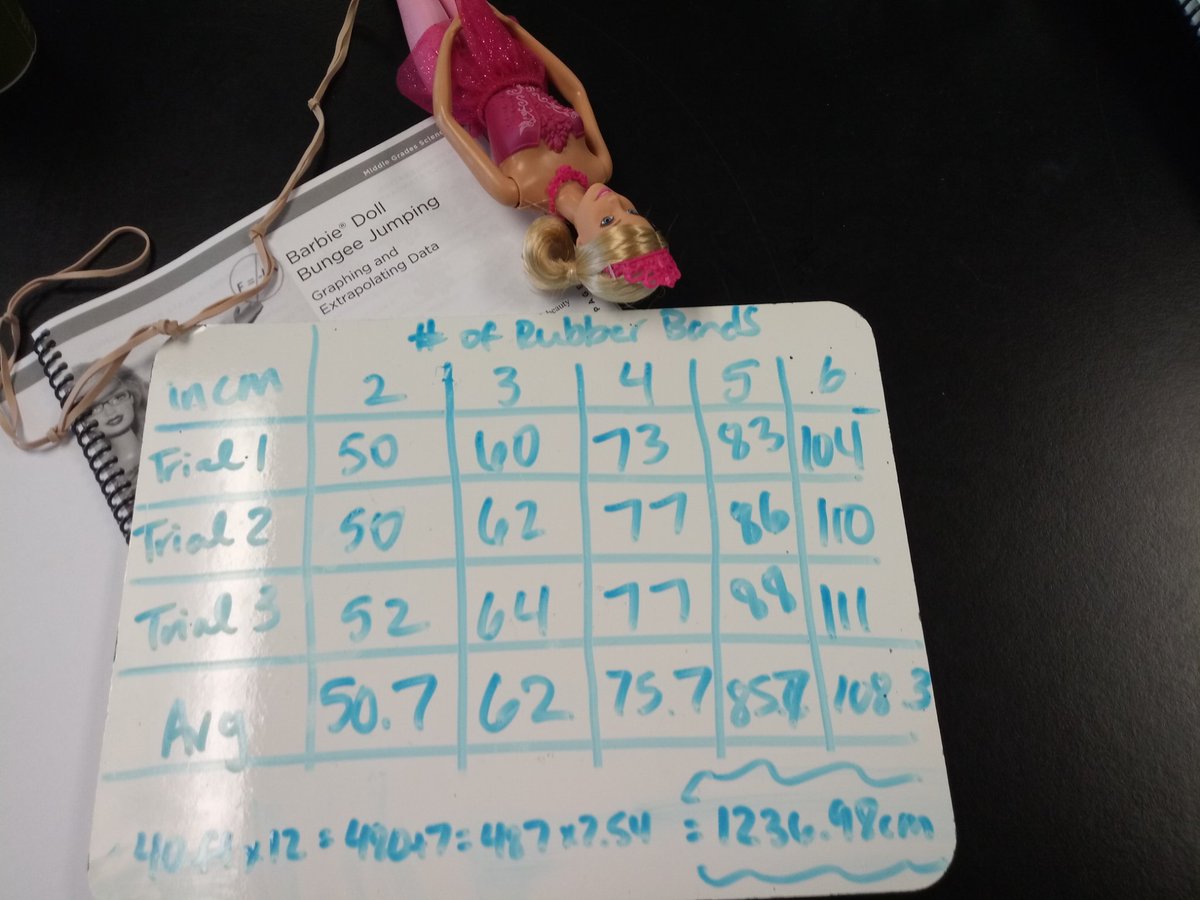 Middle Grades Scien
Barbie® Doll
Bungee Jumping
Graphing and
Extrapolating Data
F =
beauty
# of Rubber Bands
in cm 2 3 4 5 6
Trial 1 50 60 73 83 104
Trial 2 50 62 77 86 110
Trial 3 52 64 77 88 111
Avg 50.7 62 75.7 85.7 108.3
40 ft x 12 = 480+7 = 487 x 2.54 = 1236.98cm